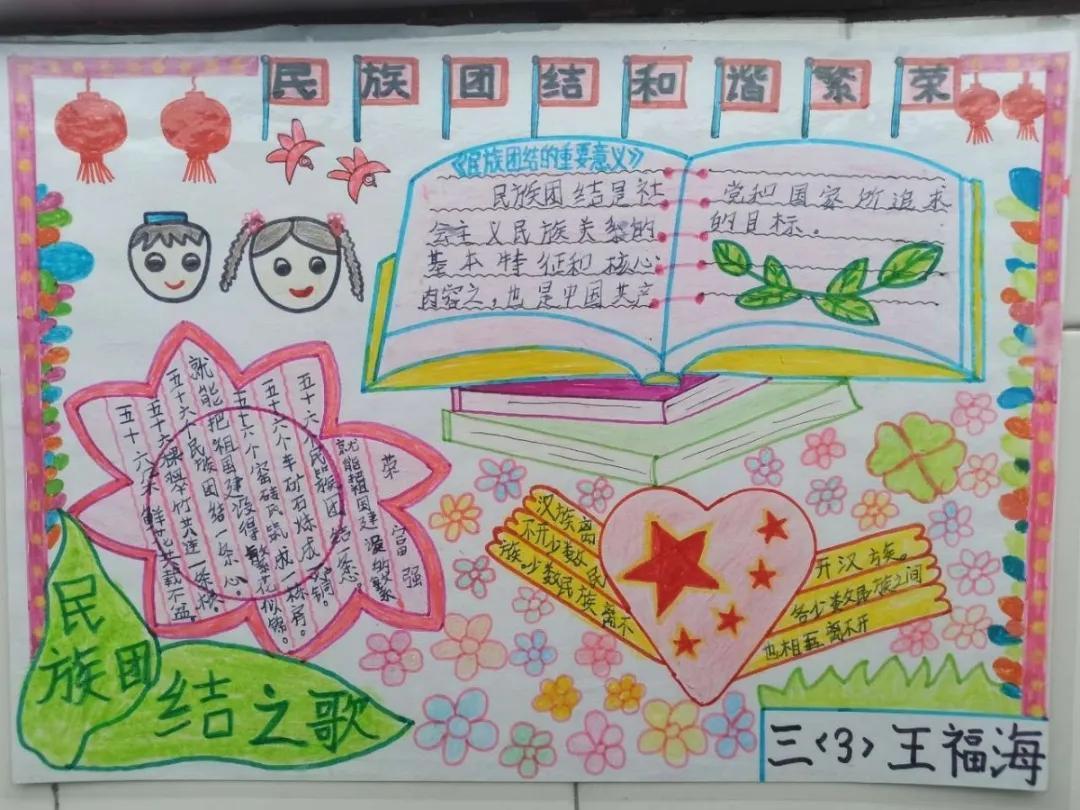 民族团结和谐繁荣
《民族团结的重要意义》
民族团结是社
会主义民族关系的
基本特征和核心
内容之，也是中国共产
党和国家所追求
的目标。
五十六朵鲜花共栽盆
五十六棵翠竹共连一条根。
五十六个民族团结一条心。
就能把祖国建设得繁花似锦。
五十六个窑砖瓦筑成一栋房。
五十六个车矿石炼成一炉钢。
五十六个民族团结一条心
就能祖国建设的繁
荣富强
民族团结之歌
汉族离
不开少数民
族，少数民族离不
开汉族。
各少数民族之间
也相互离不开
三〈3〉王福海